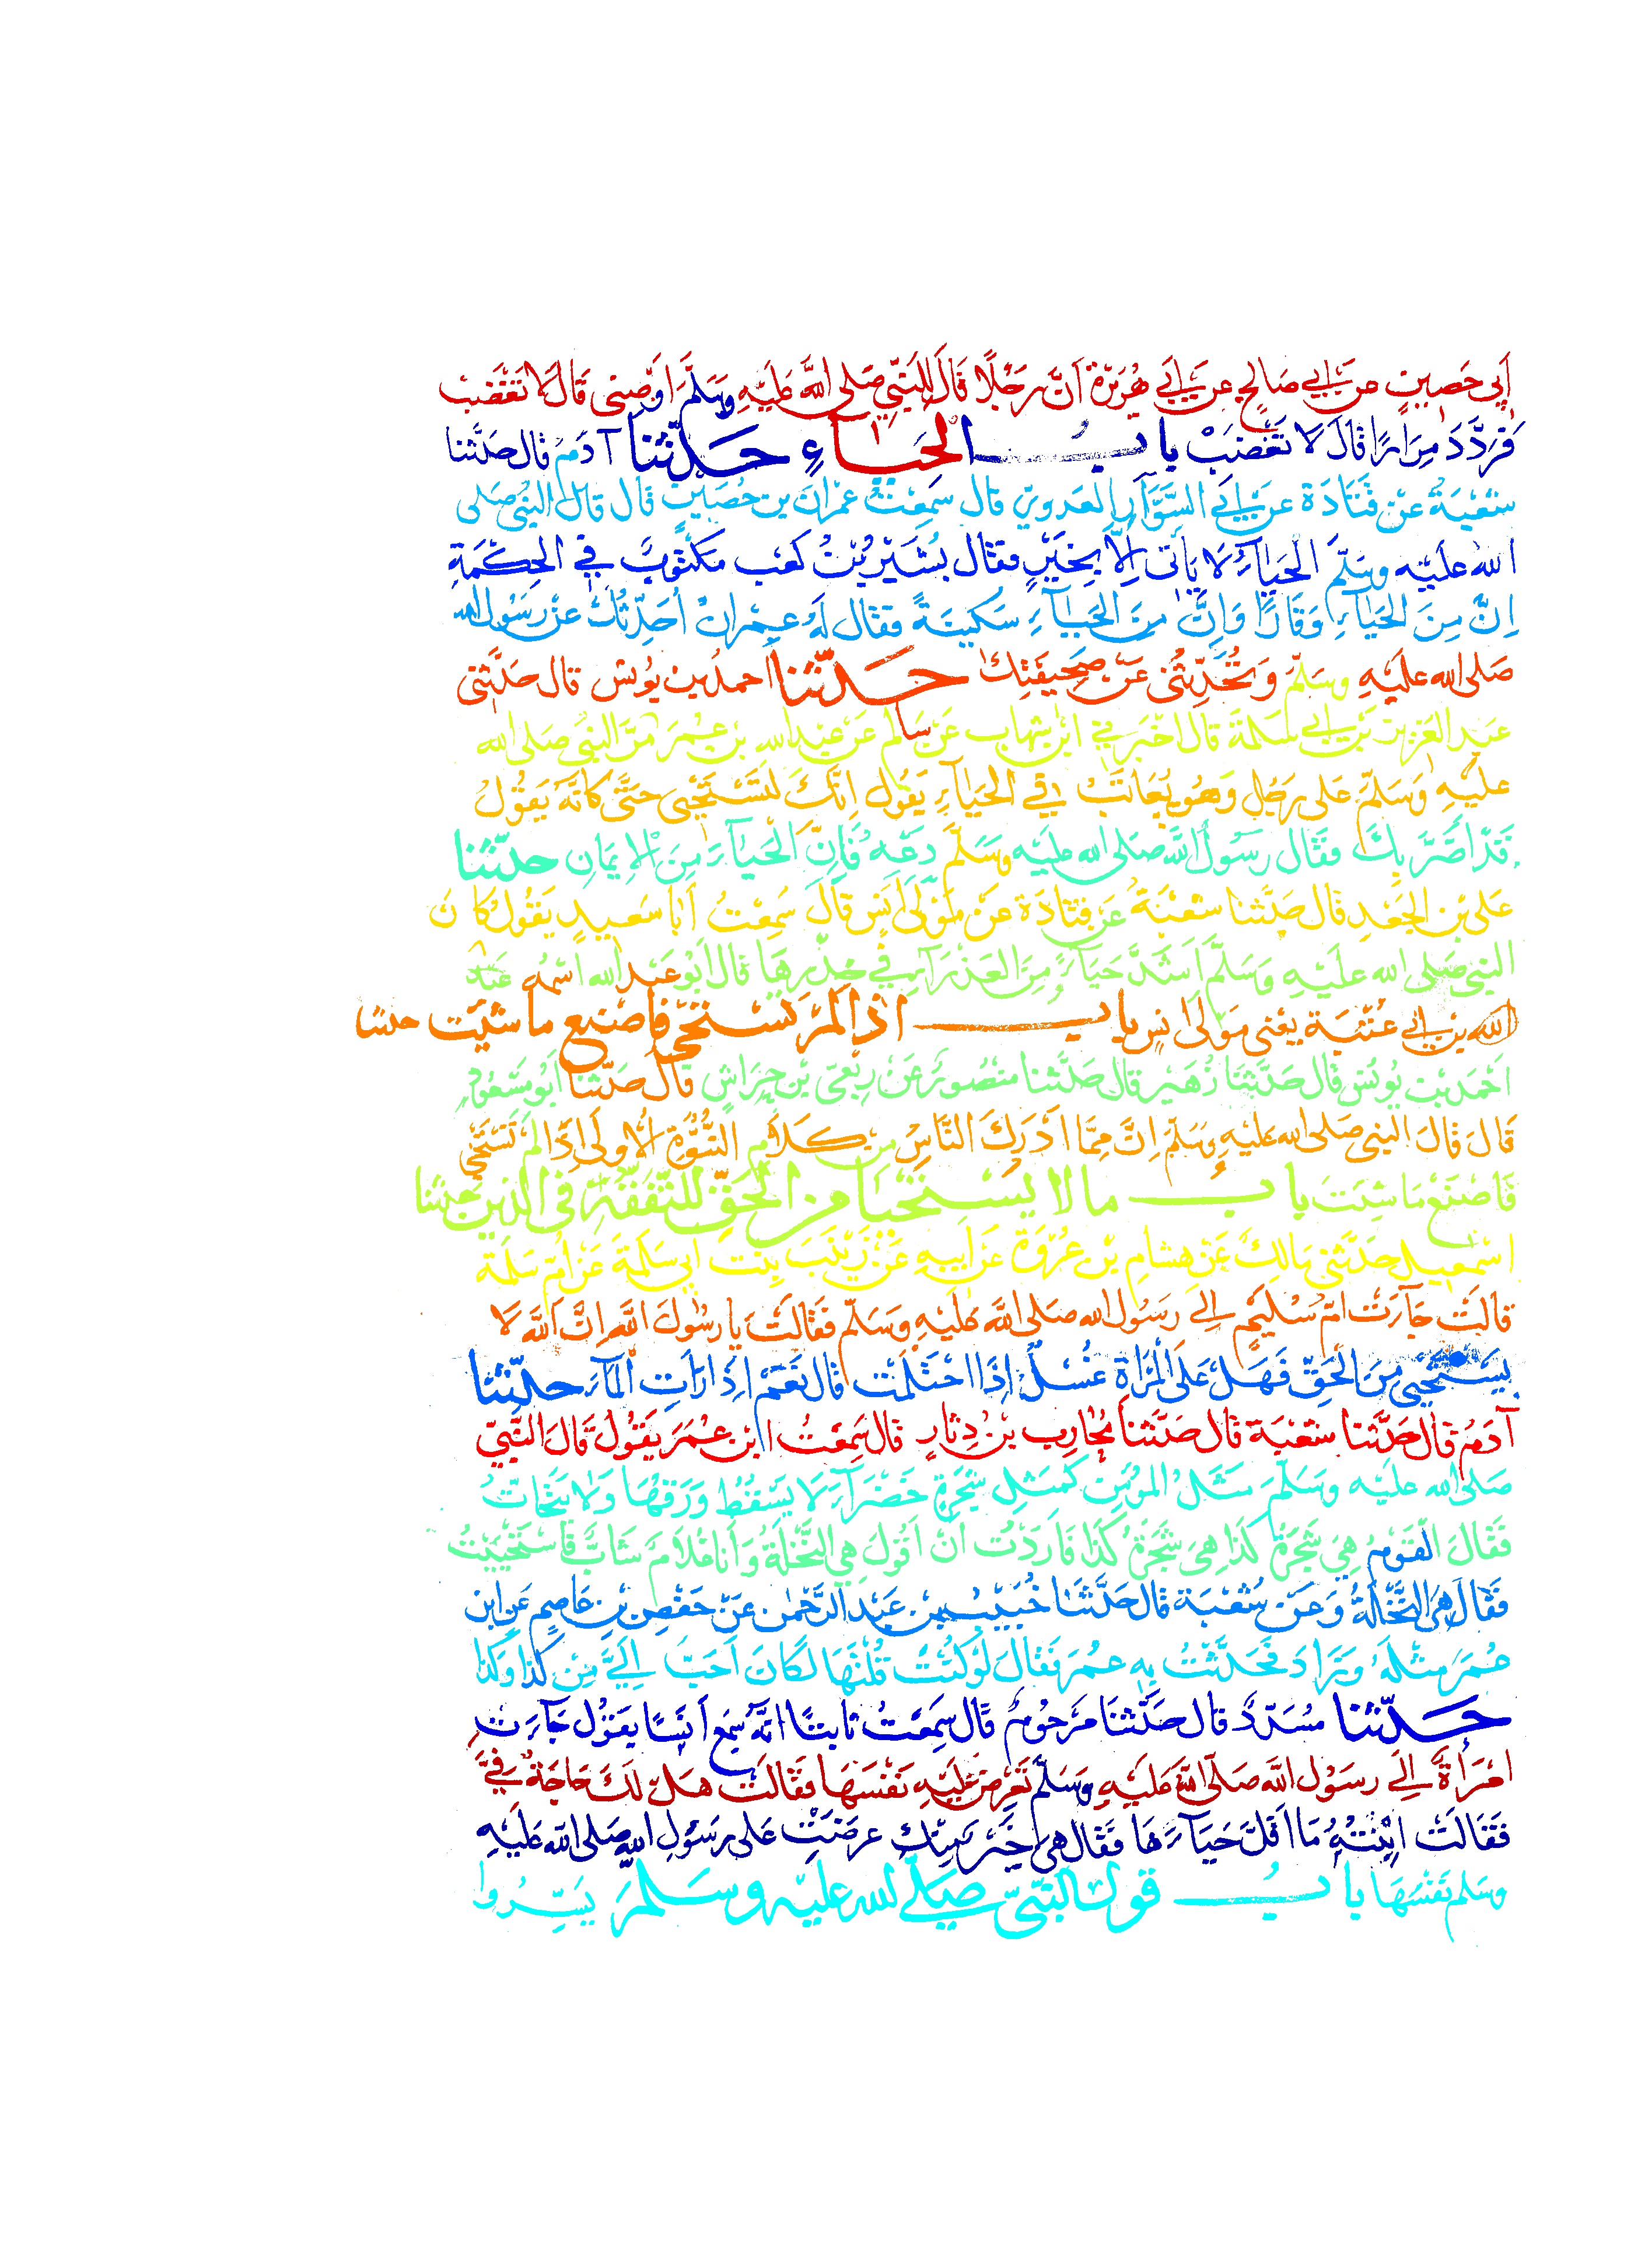 أَبِي حَصِينٍ عن أبي صَالِحٍ عن أَبِي هُرَيْرَةَ أَنَّ رَجُلًا قَالَ لِلنَّبِيِّ صَلى اللهُ عَلَيْهِ وَسَلَّمَ أَوْصِنِى قَالَ لَا تَغْضَبْ
فَرَدَّدَ مِرَارًا قَالَ لَا تَغْضَبْ باب الحَيَاءِ حَدَّثَنَا آدَمُ قال حَدَّثَنا
شُعْبَةُ عَنْ قَتَادَةَ عَنْ أَبِي السَّوَّارِ العَدَوِيِّ قال سَمِعْتُ عِمْرَانَ بن حُصَيْنٍ قال قال النبيُّ صَلى
اللهُ عَلَيْهِ وسَلَّمَ الحَيَاءُ لَا يَأْتِى إِلَّا بِخَيْرٍ فقال بُشَيْرُ بْنُ كَعْبٍ مَكْتُوبٌ فِي الحِكْمَةِ
إِنَّ مِنَ الحَيَاءِ وَقَارًا وَإِنَّ مِنَ الحَيَاءِ سَكِينَةً فقال لَهُ عِمْرَانُ أُحَدِّثُكَ عَنْ رَسُولِ الله
صَلى الله عَلَيْهِ وسَلَّمَ وَتُحَدِّثُنِى عَنْ صَحِيفَتِكَ حَدَّثَنَا احمدُ بن يُونُسَ قال حَدَّثَنِى
عَبْدُ العَزِيزِ بْنُ أَبِي سَلَمَةَ قال اخْبَرَنِي ابْنُ شِهَابٍ عَنْ سَالِمٍ عَنْ عَبْدِ اللهِ بْنِ عُمَرَ مَرَّ النبيُّ صَلى الله
عليْهِ وَسَلَّمَ عَلى رَجُلٍ وَهُوَ يُعَاتَبُ فِي الحَيَاءِ يَقُولُ إِنَّكَ لَتَسْتَحْيِى حَتَّى كَأَنَّهُ يَقُولُ
قَدْ أَضَرَّ بِكَ فقَال رَسُولُ اللهِ صَلى الله عليْه وسَلَّمَ دَعْهُ فَإِنَّ الحَيَاءَ مِنَ الإِيمَانِ حدثنا
عَلى بْن الجَعْدِ قال حَدَّثَنا شُعْبَةُ عَن قَتَادَةَ عَنْ مَوْلَى أَنَسٍ قَالَ سَمِعْتُ أَبَا سَعيدٍ يَقُولُ كَانَ
النبي صَلى الله عليْهِ وَسَلَّمَ أَشَدَّ حَيَاءً مِنَ العَذْرَاءِ فِي خِدْرِهَا قال أَبُو عَبْدِ الله اسْمُهُ عَبْدُ
الله بن أَبِي عُتْبَة يعْنى مَوْلَى أنس باب اذا لَمْ تَسْتَحْىِ فاصْنَعْ ما شِئْتَ حدثنا
أَحْمَد بن يُونُسَ قال حَدَّثَنَا زُهَيْر قال حَدَّثَنا مَنْصُورٌ عَنْ رِبْعِىّ بْن حِرَاشٍ قَال حَدَّثَنا أَبُو مَسْعُودٍ
قَالَ قَالَ النبى صَلى الله عليْهِ وسَلَّمَ اِنَّ مِمَّا أَدْرَكَ النَّاسُ من كَلَامِ النُّبُوَّةِ الأُولَى إِذَا لَمْ تَسْتَحْىِ
فَاصْنَعْ مَا شِئْتَ باب ما لا يُسْتَحْيَا مِن الحَقِّ لِلتَّفَقُّهِ فى الدين حدثنا
اسْمعيل حَدَّثَنِى مَالِكٌ عَنْ هِشَامِ بْنِ عُرْوَةَ عَنْ أَبِيهِ عَنْ زَيْنَبَ بِنْتِ أَبِي سَلَمَةَ عَنْ أُمِّ سَلَمَةَ
قالَتْ جَاءَتْ أُمُّ سُلَيْمٍ إلى رَسُولِ الله صَلى اللهُ عليْهِ وَسَلَّمَ فَقَالَتْ يا رسُولَ اللهِ إِنَّ اللهَ لَا
يَسْتَحْيِى مِنَ الحَقِّ فَهَلْ عَلَى المَرْأَةِ غُسْلٌ إِذَا احْتَلَمَتْ قال نَعَمْ إِذَا رَأَتِ المَاءَ حدثنا
آدَمُ قَال حَدَّثَنا شُعْبَة قال حَدَّثَنا مُحَارِبُ بْنُ دِثَارٍ قال سَمِعْتُ ابْنَ عُمَرَ يَقُولُ قَالَ النَّبِيُّ
صَلى الله عليْه وسَلَّمَ مَثَلُ المُؤْمِنِ كَمَثَلِ شَجَرَةٍ خَضْرَاءَ لَا يَسْقُطُ وَرَقُهَا وَلَا يَتَحَاتُّ
فَقَالَ القَوْمُ هِيَ شَجَرَةُ كَذَا هِيَ شَجَرَةُ كَذَا فَأَرَدْتُ أَنْ أَقُولَ هِيَ النَّخْلَةُ وَأَنَا غُلَامٌ شَابٌّ فَاسْتَحْيَيْتُ
فَقَالَ هِيَ النَّخْلَةُ وَعَنْ شُعْبَة قال حَدَّثَنَا خُبَيْبُ بن عَبْدِ الرَّحْمٰن عَنْ حَفْصِ بْنِ عَاصِمٍ عَن ابْن
عُمَرَ مِثْلَهُ وَزَادَ فَحَدَّثْتُ بِهِ عُمَرَ فَقَالَ لَوْ كُنْتَ قُلْتَهَا لَكَانَ أَحَبَّ إِلَيَّ مِنْ كَذَا وَكَذَا
حَدَّثَنا مُسَدَّدٌ قال حَدَّثَنَا مَرْحُومٌ قَال سَمِعْتُ ثَابِتًا انَّهُ سَمِعَ أَنَسًا يَقُولُ جَاءَتِ
امْرَأَةٌ إِلَى رسَوُل الله صَلَّى اللهُ عَلَيْهِ وَسَلَّمَ تَعْرِضُ عَلَيْهِ نَفْسَهَا فقَالَتْ هَلْ لَكَ حَاجَةٌ فِيَّ
فَقَالَتِ ابْنَتُهُ مَا أَقَلَّ حَيَاءَهَا فَقَال هِيَ خَيْرٌ مِنْكِ عَرَضَتْ عَلى رَسُولِ اللهِ صَلى الله عَلَيْهِ
وسَلم نَفْسَهَا باب قول النَّبِيِّ صَلى الله عليْه وسَلَّمَ يَسِّرُوا